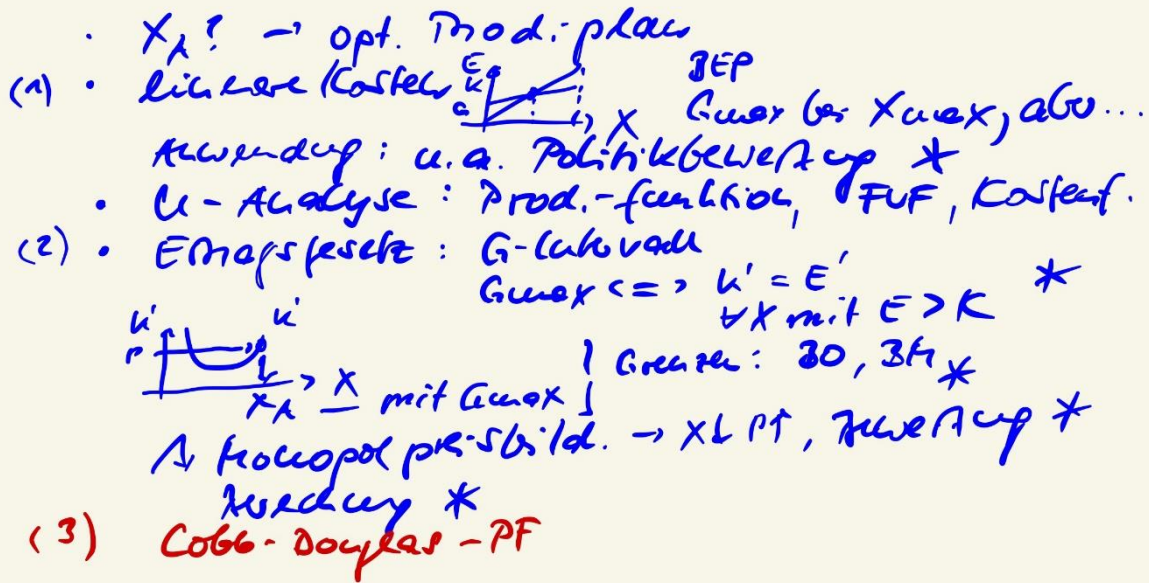 · X_A? → opt. Prod.-plan
(1) · lineare Kosten E K G X BEP
Gmax bei Xmax, aber...
Anwendung: u.a. Politikbewertung *
· U-Analyse: Prod.-funktion, FVF, Kostenf.
(2) · Ertragsgesetz: G-Intervall
Gmax <=> K' = E' *
∀X mit E > K
K' K'
P
X_A > X mit Gmax } Grenzen: BO, BM *
Monopolpreisbild. → X↓ P↑, Auswertung *
(3) Cobb-Douglas-PF